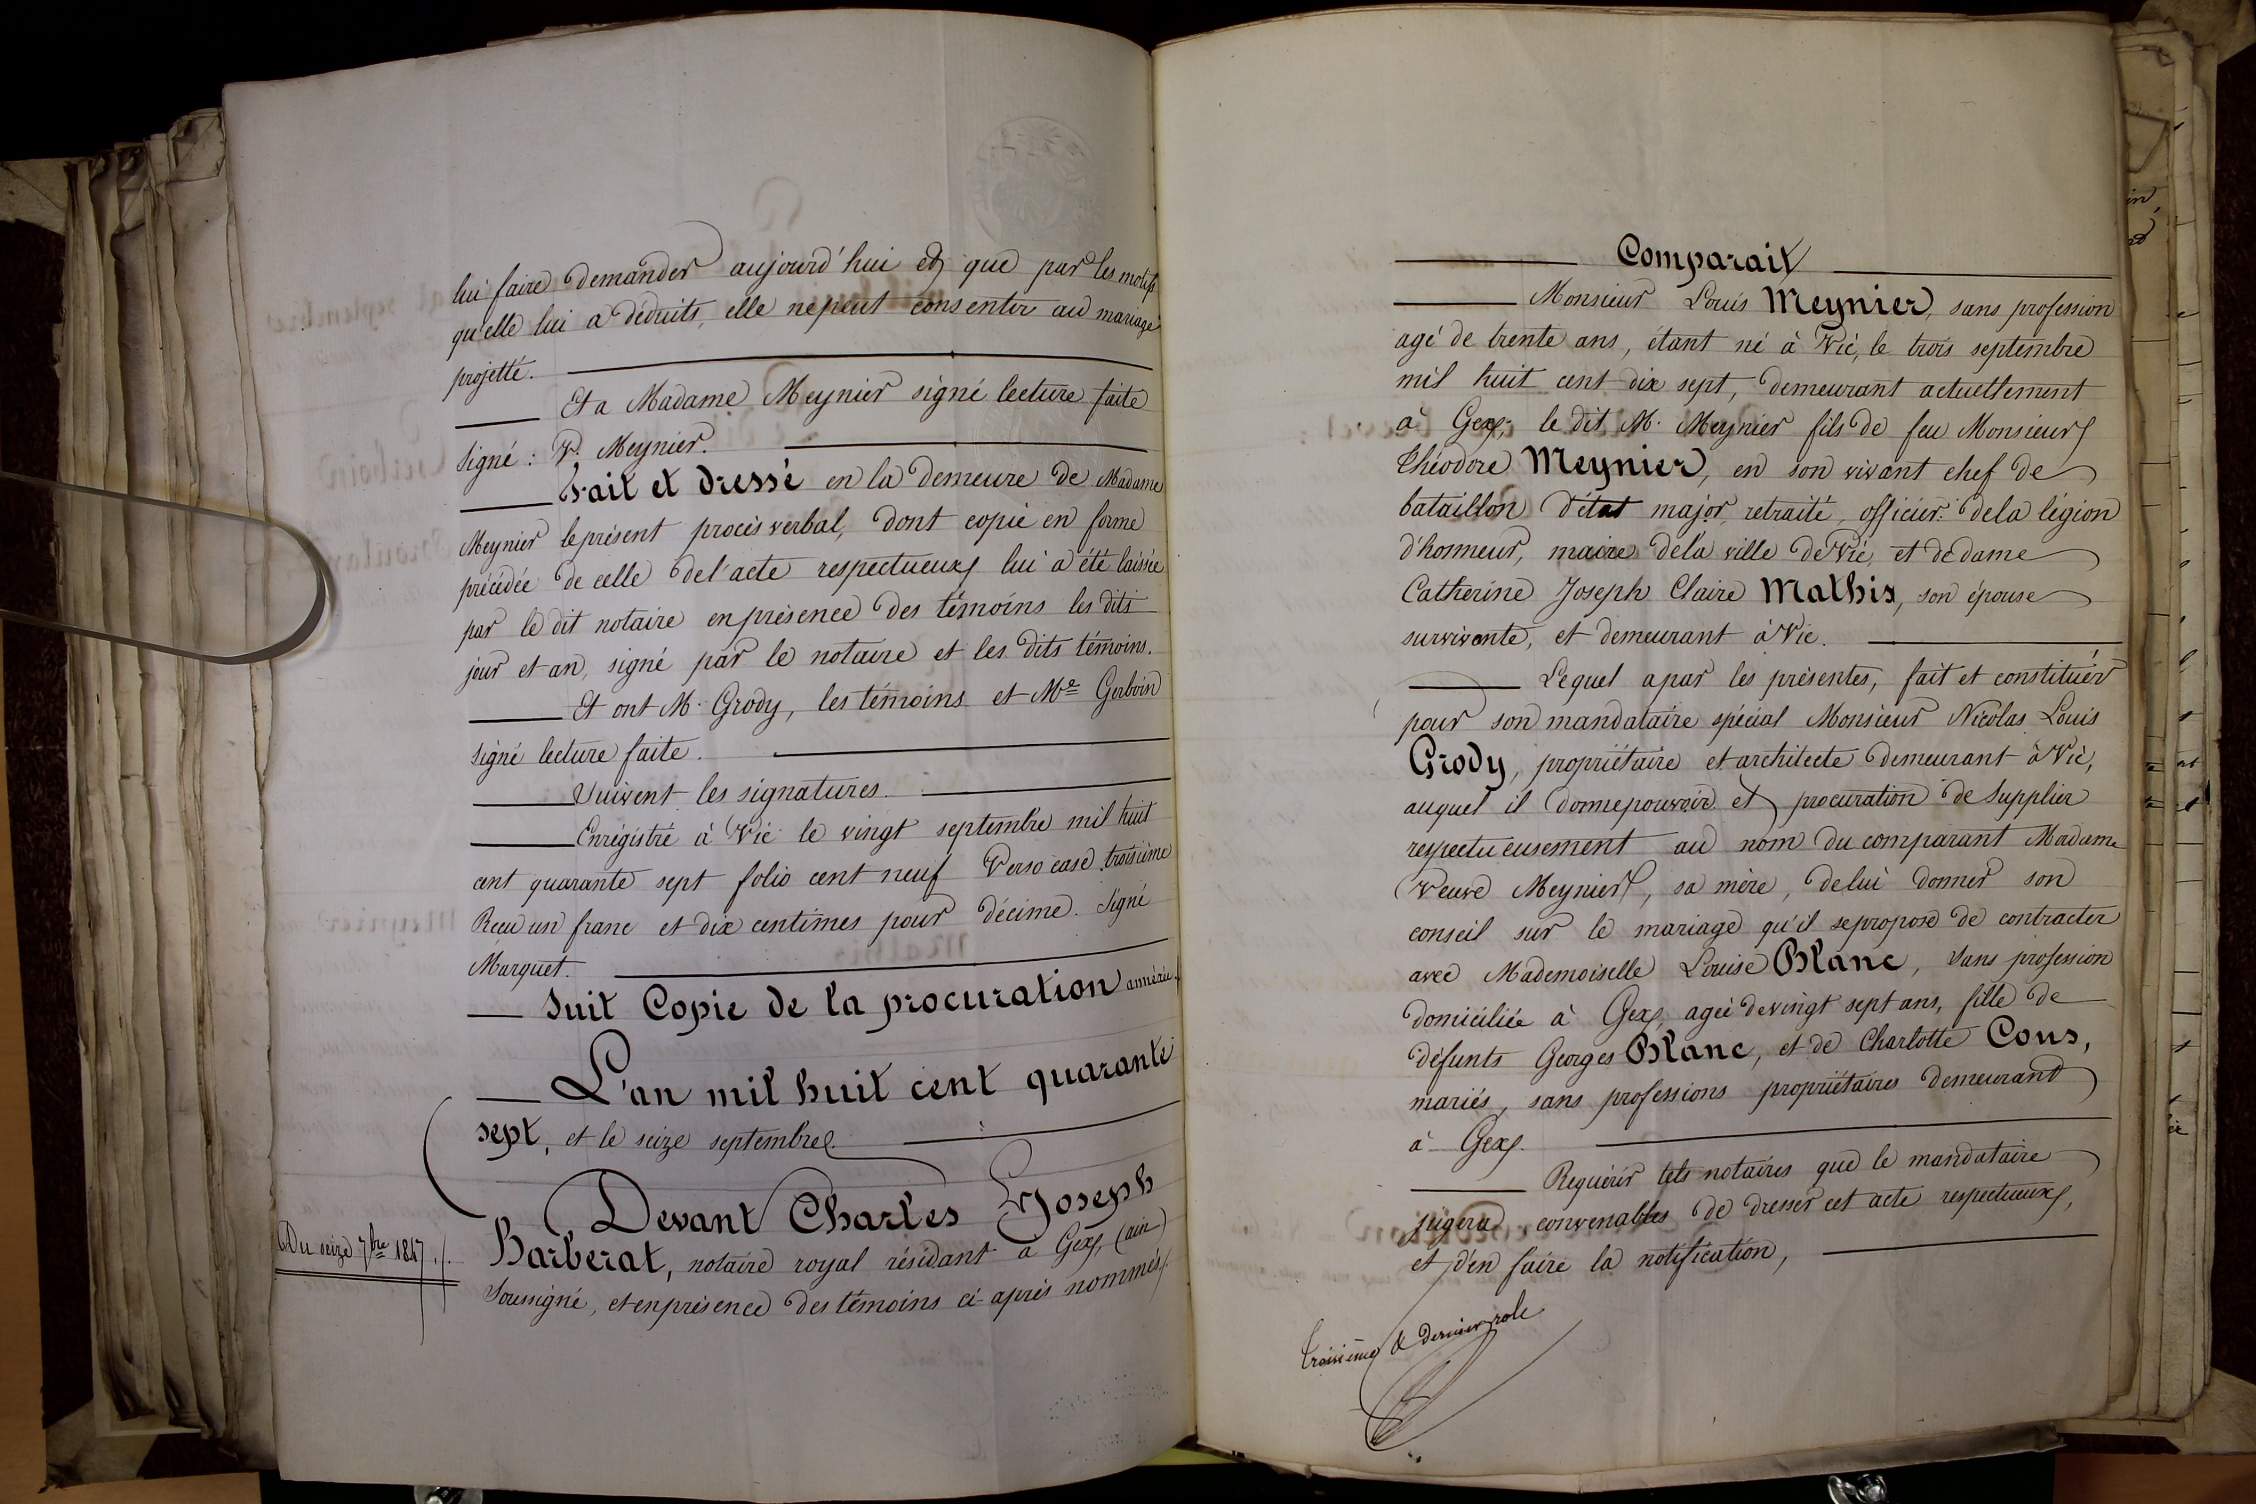 lui faire demander aujourd'hui et que par les motifs
qu'elle lui a déduits, elle ne peut consentir au mariage
projetté.
Et a Madame Meynier signé lecture faite
Signé : V. Meynier.
Fait et dressé en la demeure de Madame
Meynier le présent procès verbal, dont copie en forme
précédée de celle de l'acte respectueux lui a été laissée
par le dit notaire en présence des témoins les dits
jour et an, signé par le notaire et les dits témoins.
Et ont M. Grody, les témoins et Me Gerboin
signé lecture faite.
Suivent les signatures.
Enrégistré à Vic le vingt septembre mil huit
cent quarante sept folio cent neuf Verso case troisième
Reçu un franc et dix centimes pour décime. Signé
Marquet.
Suit Copie de la procuration annéxée.
L'an mil huit cent quarante
sept, et le seize septembre
Devant Charles Joseph
Du seize 7bre 1847 ./.
Barberat, notaire royal résidant à Gex, (ain)
Soussigné, et en présence des témoins ci-après nommés
Comparait
Monsieur Louis Meynier, sans profession
agé de trente ans, étant né à Vic, le trois septembre
mil huit cent dix sept, demeurant actuellement
à Gex, le dit M. Meynier fils de feu Monsieur
Théodore Meynier, en son vivant chef de
bataillon d'état major, retraité, officier de la légion
d'honneur, maire de la ville de Vic, et de dame
Catherine Joseph Claire Mathis, son épouse
survivante, et demeurant à Vic.
Lequel a par les présentes, fait et constituér
pour son mandataire spécial Monsieur Nicolas Louis
Grody, propriétaire et architecte demeurant à Vic,
auquel il donne pouvoir et procuration de Supplier
respectueusement au nom du comparant Madame
Veuve Meynier, sa mère, de lui donner son
conseil sur le mariage qu'il se propose de contracter
avec Mademoiselle Louise Blanc, sans profession
domiciliée à Gex, agée de vingt sept ans, fille de
défunts Georges Blanc, et de Charlotte Cons,
mariés, sans professions propriétaires demeurant
à Gex.
Requérir tels notaires que le mandataire
jugera convenables de dresser cet acte respectueux,
et d'en faire la notification,
Troisième & dernier role